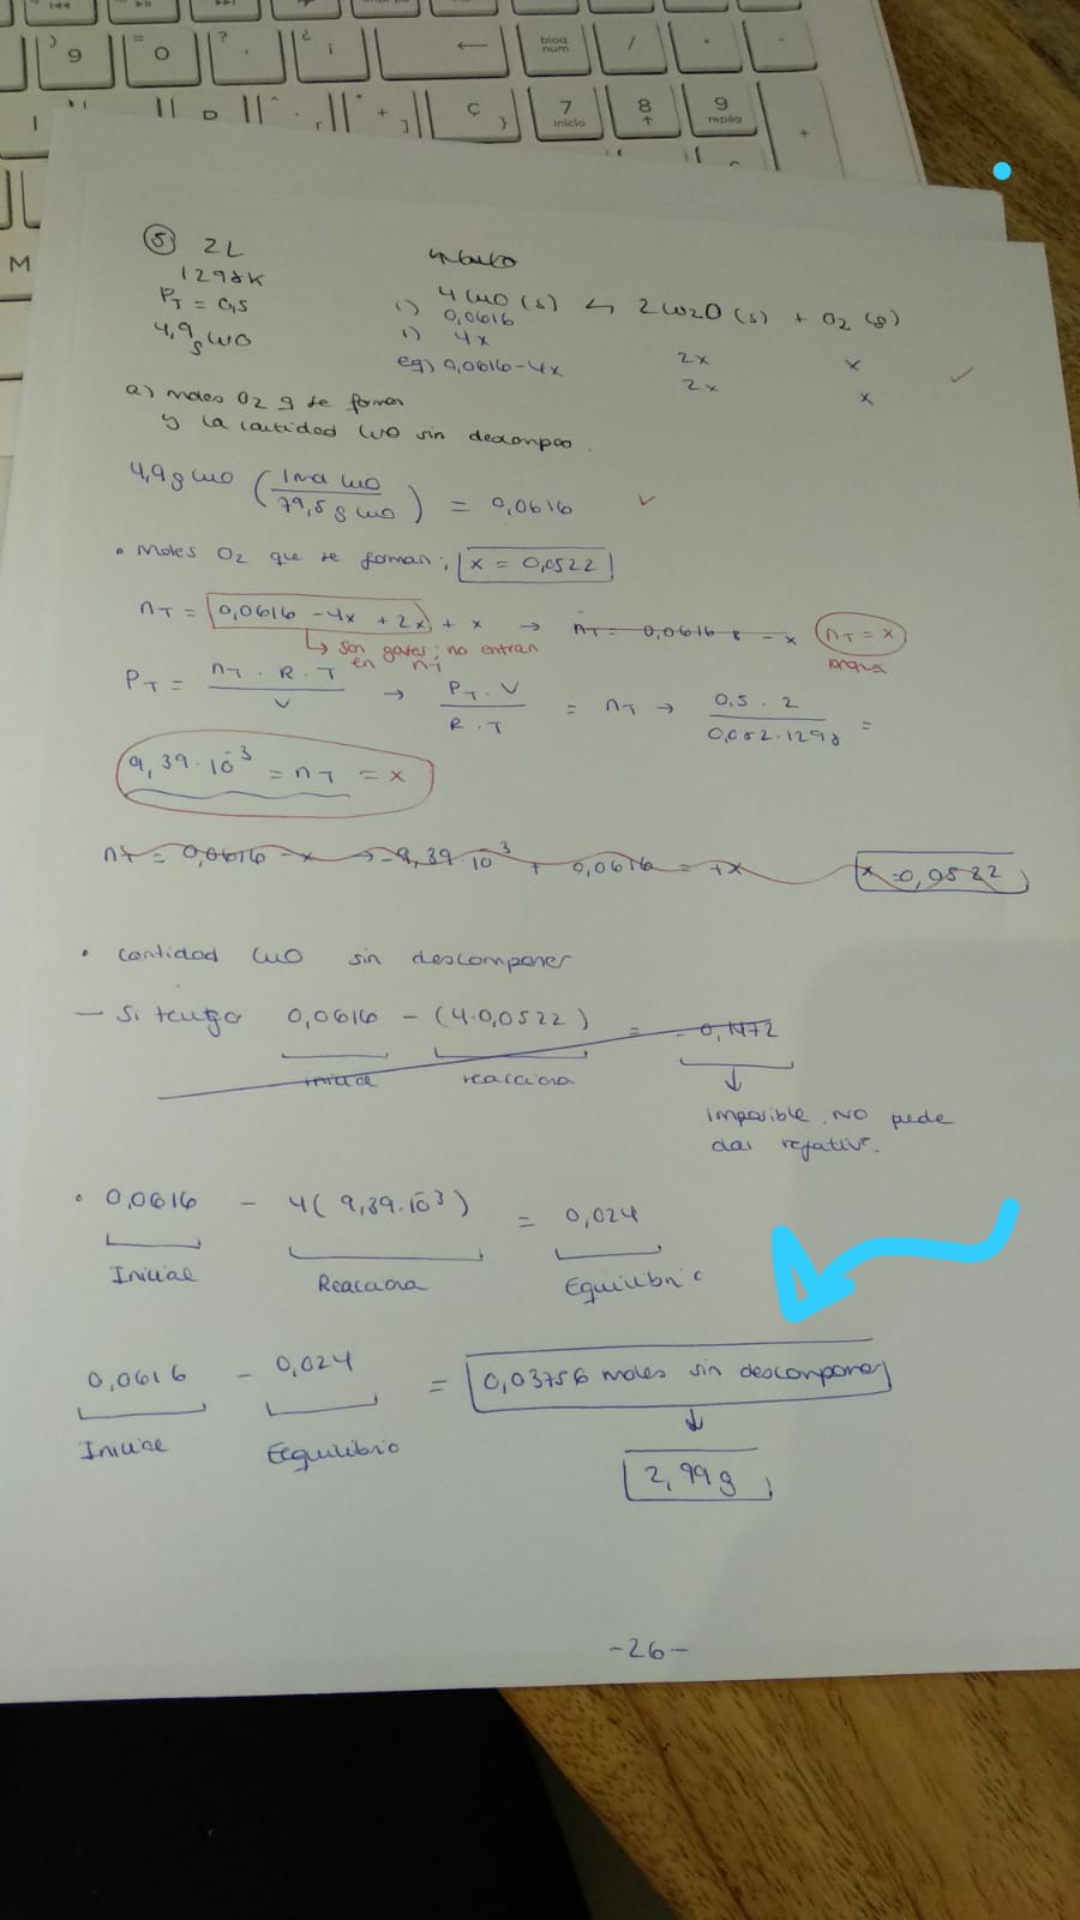 ) 9
= 0
? '
¿ ¡
←
bloq num
/
*
-
P
+ ]
Ç }
7 inicio
8 ↑
9 repág
+
M
⑤ 2L
1298K
P_T = 0,5
4,9 g CuO
4 CuO (s) ⇆ 2 Cu2O (s) + O2 (g)
i) 0,0616
4x 2x x
eq) 0,0616-4x 2x x ✓
a) moles O2 q se forman
y la cantidad CuO sin descompo.
4,9 g CuO (1 mol CuO / 79,5 g CuO) = 0,0616 ✓
• Moles O2 que se forman; x = 0,0522
n_T = 0,0616 - 4x + 2x + x → n_T = 0,0616 - x n_T = x
↳ son gases; no entran en n_T
P_T = n_T · R · T / V → P_T · V / R · T = n_T → 0.5 . 2 / 0,082.1298 =
9,39·10⁻³ = n_T = x
n_T = 0,0616 - x → -9,39·10⁻³ + 0,0616 = +x x = 0,0522
• Cantidad CuO sin descomponer
- Si tengo 0,0616 - (4·0,0522) = -0,1472
inicial reacciona ↓
imposible. NO puede
dar negativo.
• 0,0616 - 4(9,39·10⁻³) = 0,024
Inicial Reacciona Equilibrio
0,0616 - 0,024 = 0,03756 moles sin descomponer
Inicial Equilibrio ↓
2,99g
-26-